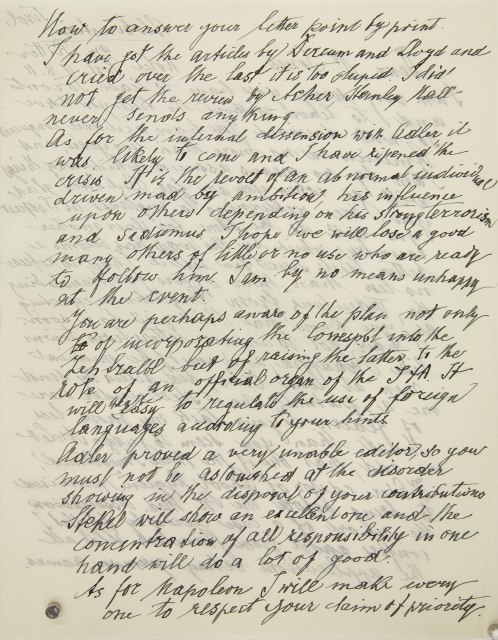 Now to answer your letter point by point.
I have got the articles by Dercum and Lloyd and
cried over the last it is too stupid I did
not get the review by Acher Stanley Hall
never sends anything
As for the internal dissension with Adler it
was likely to come and I have ripened the
crisis It is the revolt of an abnormal individual
driven mad by ambition, his influence
upon others depending on his strong terrorism
and Sadismus I hope we will lose a good
many others of little or no use who are ready
to follow him. I am by no means unhappy
at the event.
You are perhaps aware of the plan not only
of incorporating the Corresp. into the
Zentralbl but of raising the latter to the
role of an official organ of the It
will easy to regulate the use of foreign
languages according to your hints.
Adler proved a very unable editor, so you
must not be astonished at the disorder
showing in the disposal of your contributions
Stekel will show an excellent one and the
concentration of all responsibility in one
hand will do a lot of good.
As for Napoleon I will make every
one to respect your claim of priority.